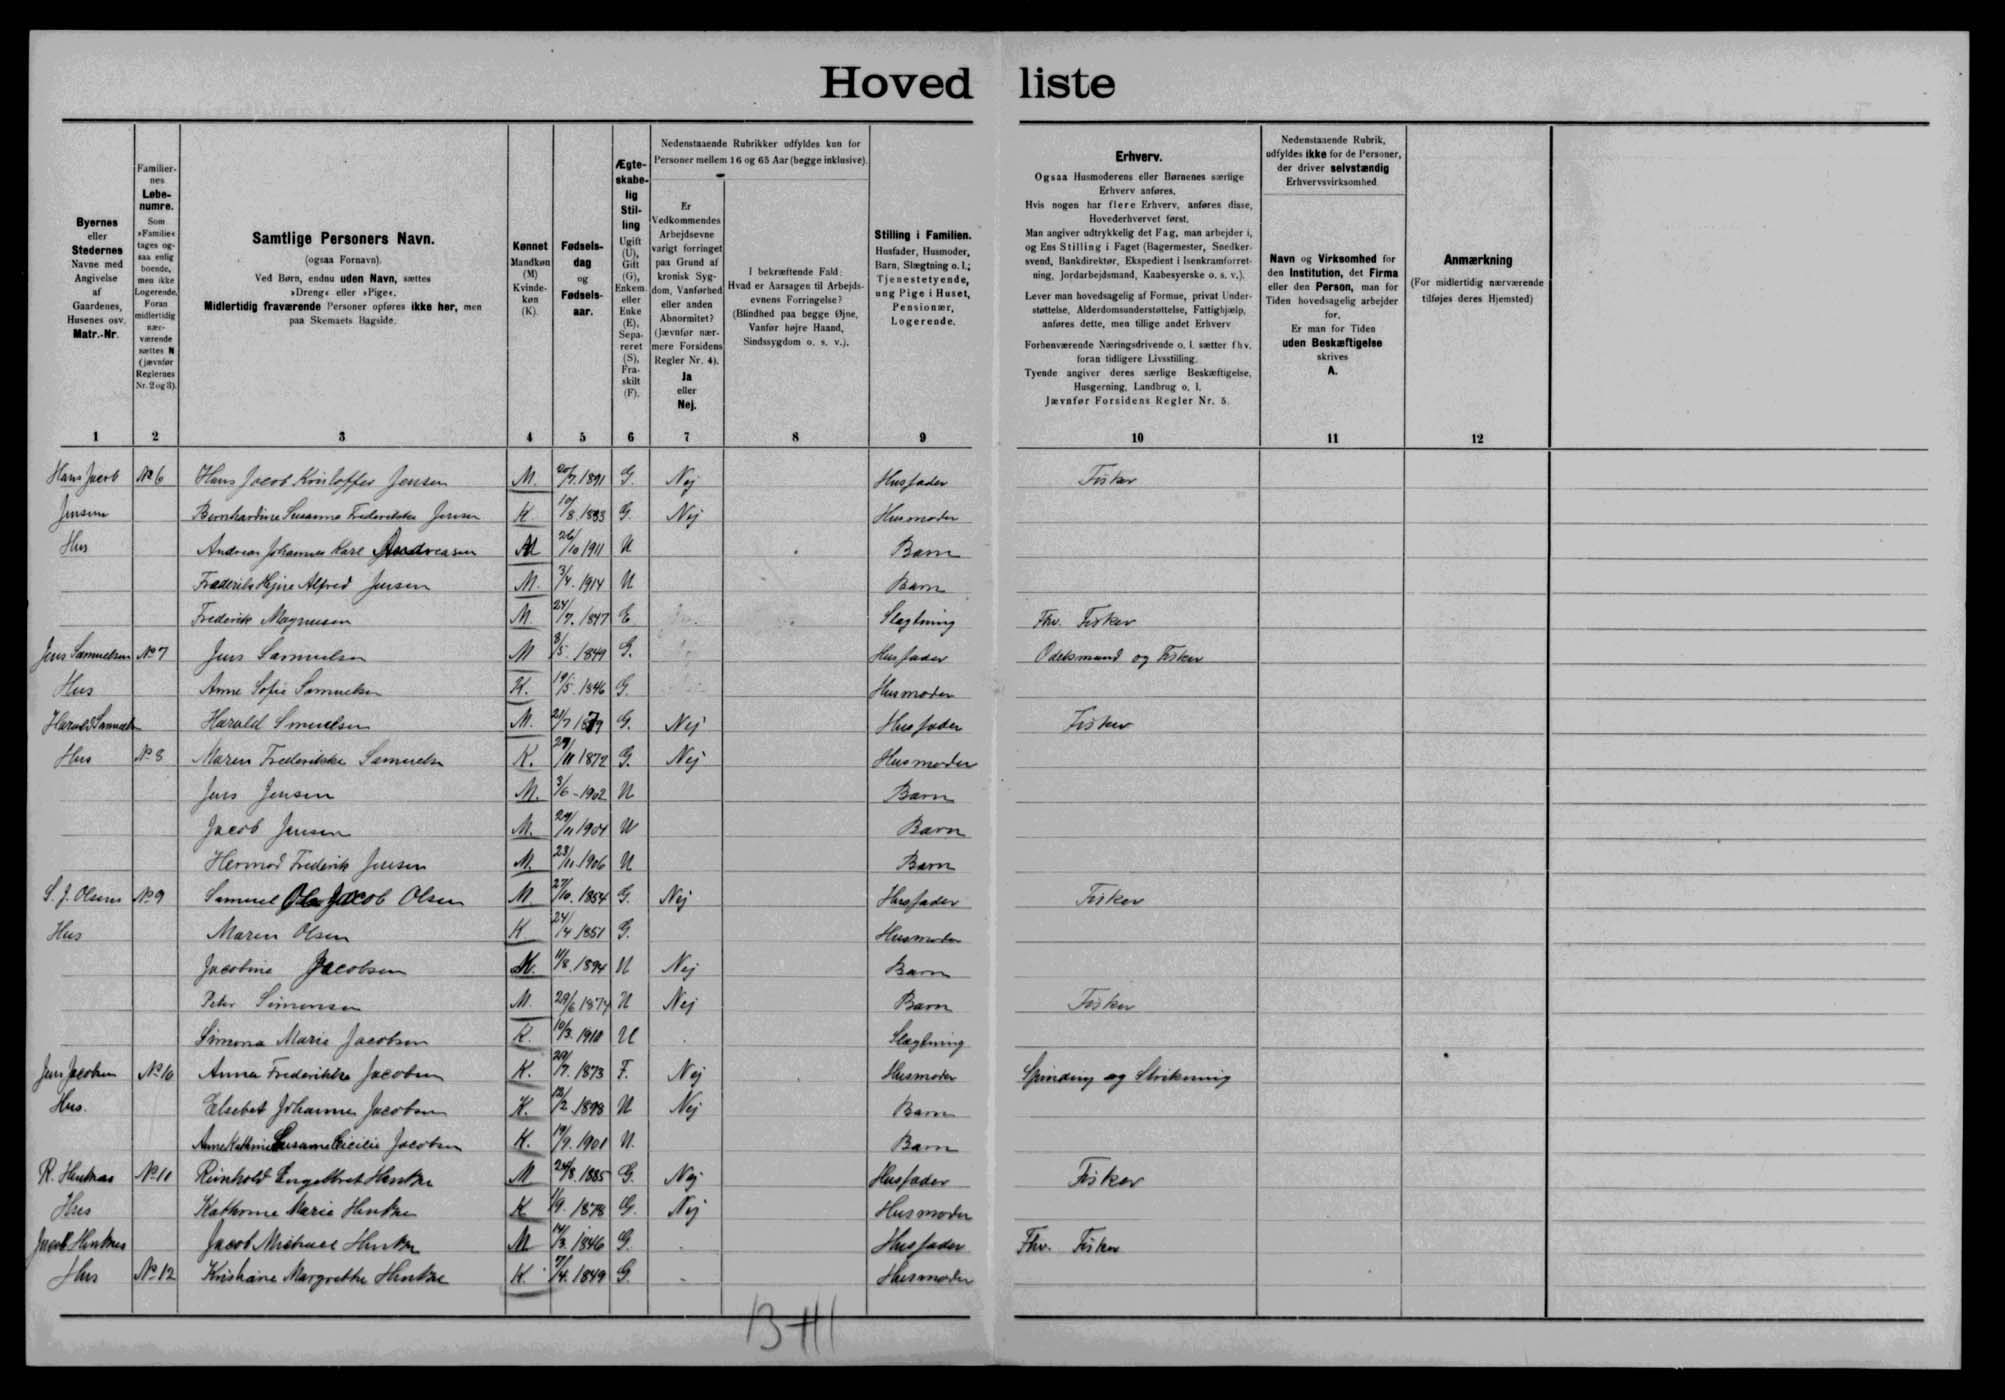 Hovedliste
Byernes eller Stedernes Navne med Angivelse af Gaardenes, Husenes osv. Matr.-Nr.
Familiernes Løbenumre. Som »Familie« tages ogsaa enlig boende, men ikke Logerende. Foran midlertidig nærværende sættes N (jævnfør Reglernes Nr. 2 og 3).
Samtlige Personers Navn. (ogsaa Fornavn). Ved Børn, endnu uden Navn, sættes »Dreng« eller »Pige«. Midlertidig fraværende Personer opføres ikke her, men paa Skemaets Bagside.
Kønnet Mandkøn (M) Kvindekøn (K).
Fødselsdag og Fødselsaar.
Ægteskabelig Stilling Ugift (U), Gift (G), Enkem. eller Enke (E), Separeret (S), Fraskilt (F).
Nedenstaaende Rubrikker udfyldes kun for Personer mellem 16 og 65 Aar (begge inklusive).
Er Vedkommendes Arbejdsevne varigt forringet paa Grund af kronisk Sygdom, Vanførhed eller anden Abnormitet? (Jævnfør nærmere Forsidens Regler Nr. 4). Ja eller Nej.
I bekræftende Fald: Hvad er Aarsagen til Arbejdsevnens Forringelse? (Blindhed paa begge Øjne, Vanfør højre Haand, Sindssygdom o. s. v.).
Stilling i Familien. Husfader, Husmoder, Barn, Slægtning o. l.; Tjenestetyende, ung Pige i Huset, Pensionær, Logerende.
Erhverv.
Ogsaa Husmoderens eller Børnenes særlige Erhverv anføres.
Hvis nogen har flere Erhverv, anføres disse, Hovederhvervet først.
Man angiver udtrykkelig det Fag, man arbejder i, og Ens Stilling i Faget (Bagermester, Snedkersvend, Bankdirektør, Ekspedient i Isenkramforretning, Jordarbejdsmand, Kaabesyerske o. s. v.).
Lever man hovedsagelig af Formue, privat Understøttelse, Alderdomsunderstøttelse, Fattighjælp, anføres dette, men tillige andet Erhverv
Forhenværende Næringsdrivende o. l. sætter fhv. foran tidligere Livsstilling.
Tyende angiver deres særlige Beskæftigelse, Husgerning, Landbrug o. l.
Jævnfør Forsidens Regler Nr. 5.
Nedenstaaende Rubrik, udfyldes ikke for de Personer, der driver selvstændig Erhvervsvirksomhed.
Navn og Virksomhed for den Institution, det Firma eller den Person, man for Tiden hovedsagelig arbejder for. Er man for Tiden uden Beskæftigelse skrives A.
Anmærkning (For midlertidig nærværende tilføjes deres Hjemsted)
1 2 3 4 5 6 7 8 9 10 11 12
Hans Jacob No 6 Hans Jacob Kristoffer Jensen M. 20/7. 1891 G. Nej Husfader Fisker
Jensens Bernhardine Susanna Frederikke Jensen K. 10/8. 1883 G. Nej Husmoder
Hus Andreas Johannes Karl Andreasen M 26/10 1911 U Barn
Frederik Hejne Alfred Jensen M. 3/4. 1914 U Barn
Frederik Magnusen M. 24/7. 1847 E Slægtning Fhv. Fisker
Jens Samuelsen No 7 Jens Samuelsen M 3/5. 1849 G. Husfader Odelsmand og Fisker
Hus Anne Sofie Samuelsen K. 19/5. 1846 G. Husmoder
Harald Samuelsen Harald Smuelsen M. 21/7 1879 G. Nej Husfader Fisker
Hus No 8 Maren Frederikke Samuelsen K. 29/11 1872 G. Nej Husmoder
Jens Jensen M. 3/6 - 1902 U Barn
Jacob Jensen M. 29/11 1904 U Barn
Hermod Frederik Jensen M. 23/11. 1906 U Barn
S. J. Olsens No 9 Samuel Ole Jacob Olsen M. 27/10. 1854 G. Nej Husfader Fisker
Hus Maren Olsen K 24/4 1851 G. Husmoder
Jacobine Jacobsen K. 11/8. 1894 U Nej Barn
Peter Simonsen M. 29/6 1874 U Nej Barn Fisker
Simona Marie Jacobsen K. 10/3. 1910 U Slægtning
Jens Jacobsen No 10 Anna Frederikke Jacobsen K. 29/7. 1873 F. Nej Husmoder Spinding og Strikning
Hus. Elsebet Johanne Jacobsen K. 12/2 1898 U Nej Barn
Anne Kathrine Susanne Cecilie Jacobsen K. 19/9. 1901 U. Barn
R. Henkes No 11 Reinhold Engelbret Henke M 24/8. 1885 G. Nej Husfader Fisker
Hus Kathrine Marie Henke K 1/9. 1878 G. Nej Husmoder
Jacob Henkes Jacob Michael Henke M 14/3. 1846 G. Husfader Fhv. Fisker
Hus No 12 Kristiane Margrethe Henke K. 7/4. 1849 G. Husmoder